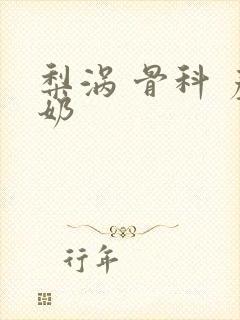 梨涡 骨科
奶
行年